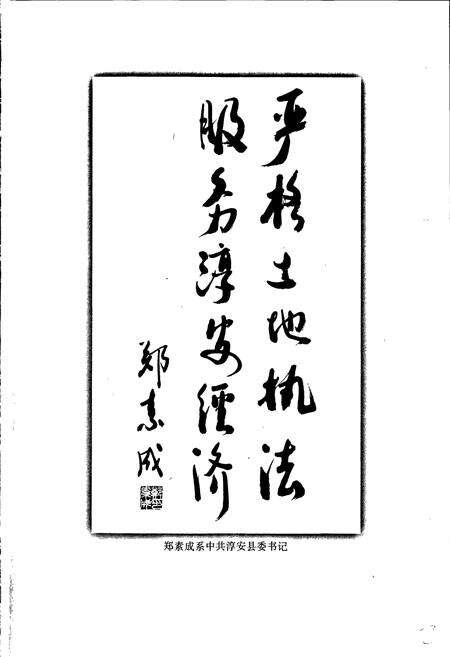 严格土地执法
服务淳安经济
郑素成
郑素成系中共淳安县委书记